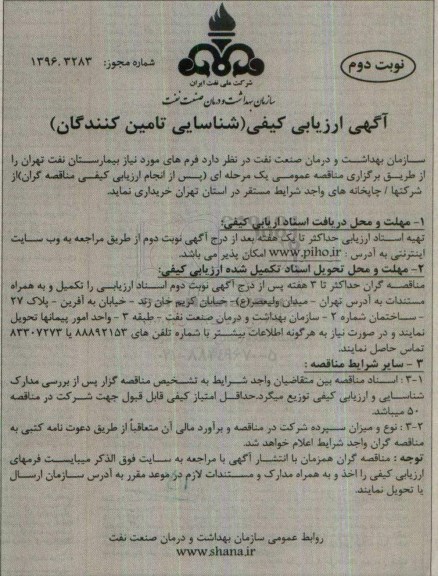 نوبت دوم
شماره مجوز: ۱۳۹۶.۳۲۸۳
شرکت ملی نفت ایران
سازمان بهداشت و درمان صنعت نفت
آگهی ارزیابی کیفی(شناسایی تامین کنندگان)
سازمان بهداشت و درمان صنعت نفت در نظر دارد فرم های مورد نیاز بیمارستان نفت تهران را
از طریق برگزاری مناقصه عمومی یک مرحله ای (پس از انجام ارزیابی کیفی مناقصه گران)از
شرکتها / چاپخانه های واجد شرایط مستقر در استان تهران خریداری نماید.
۱- مهلت و محل دریافت اسناد ارزیابی کیفی:
تهیه اسناد ارزیابی حداکثر تا یک هفته بعد از درج آگهی نوبت دوم از طریق مراجعه به وب سایت
اینترنتی به آدرس : www.piho.ir امکان پذیر می باشد.
۲- مهلت و محل تحویل اسناد تکمیل شده ارزیابی کیفی:
مناقصه گران حداکثر تا ۳ هفته پس از درج آگهی نوبت دوم اسناد ارزیابی را تکمیل و به همراه
مستندات به آدرس تهران - میدان ولیعصر(ع)- خیابان کریم خان زند - خیابان به آفرین - پلاک ۲۷
- ساختمان شماره ۲ - سازمان بهداشت و درمان صنعت نفت - طبقه ۳ - واحد امور پیمانها تحویل
نمایند و در صورت نیاز به هرگونه اطلاعات بیشتر با شماره تلفن های ۸۸۸۹۲۱۵۳ یا ۸۳۳۰۷۲۷۳
تماس حاصل نمایند.
۳ - سایر شرایط مناقصه :
۳-۱: اسناد مناقصه بین متقاضیان واجد شرایط به تشخیص مناقصه گزار پس از بررسی مدارک
شناسایی و ارزیابی کیفی توزیع میگردد.حداقل امتیاز کیفی قابل قبول جهت شرکت در مناقصه
۵۰ میباشد.
۳-۲: نوع و میزان سپرده شرکت در مناقصه و برآورد مالی آن متعاقباً از طریق دعوت نامه کتبی به
مناقصه گران واجد شرایط اعلام خواهد شد.
توجه : مناقصه گران همزمان با انتشار آگهی با مراجعه به سایت فوق الذکر میبایست فرمهای
ارزیابی کیفی را اخذ و به همراه مدارک و مستندات لازم در موعد مقرر به آدرس سازمان ارسال
یا تحویل نمایند.
روابط عمومی سازمان بهداشت و درمان صنعت نفت
www.shana.ir